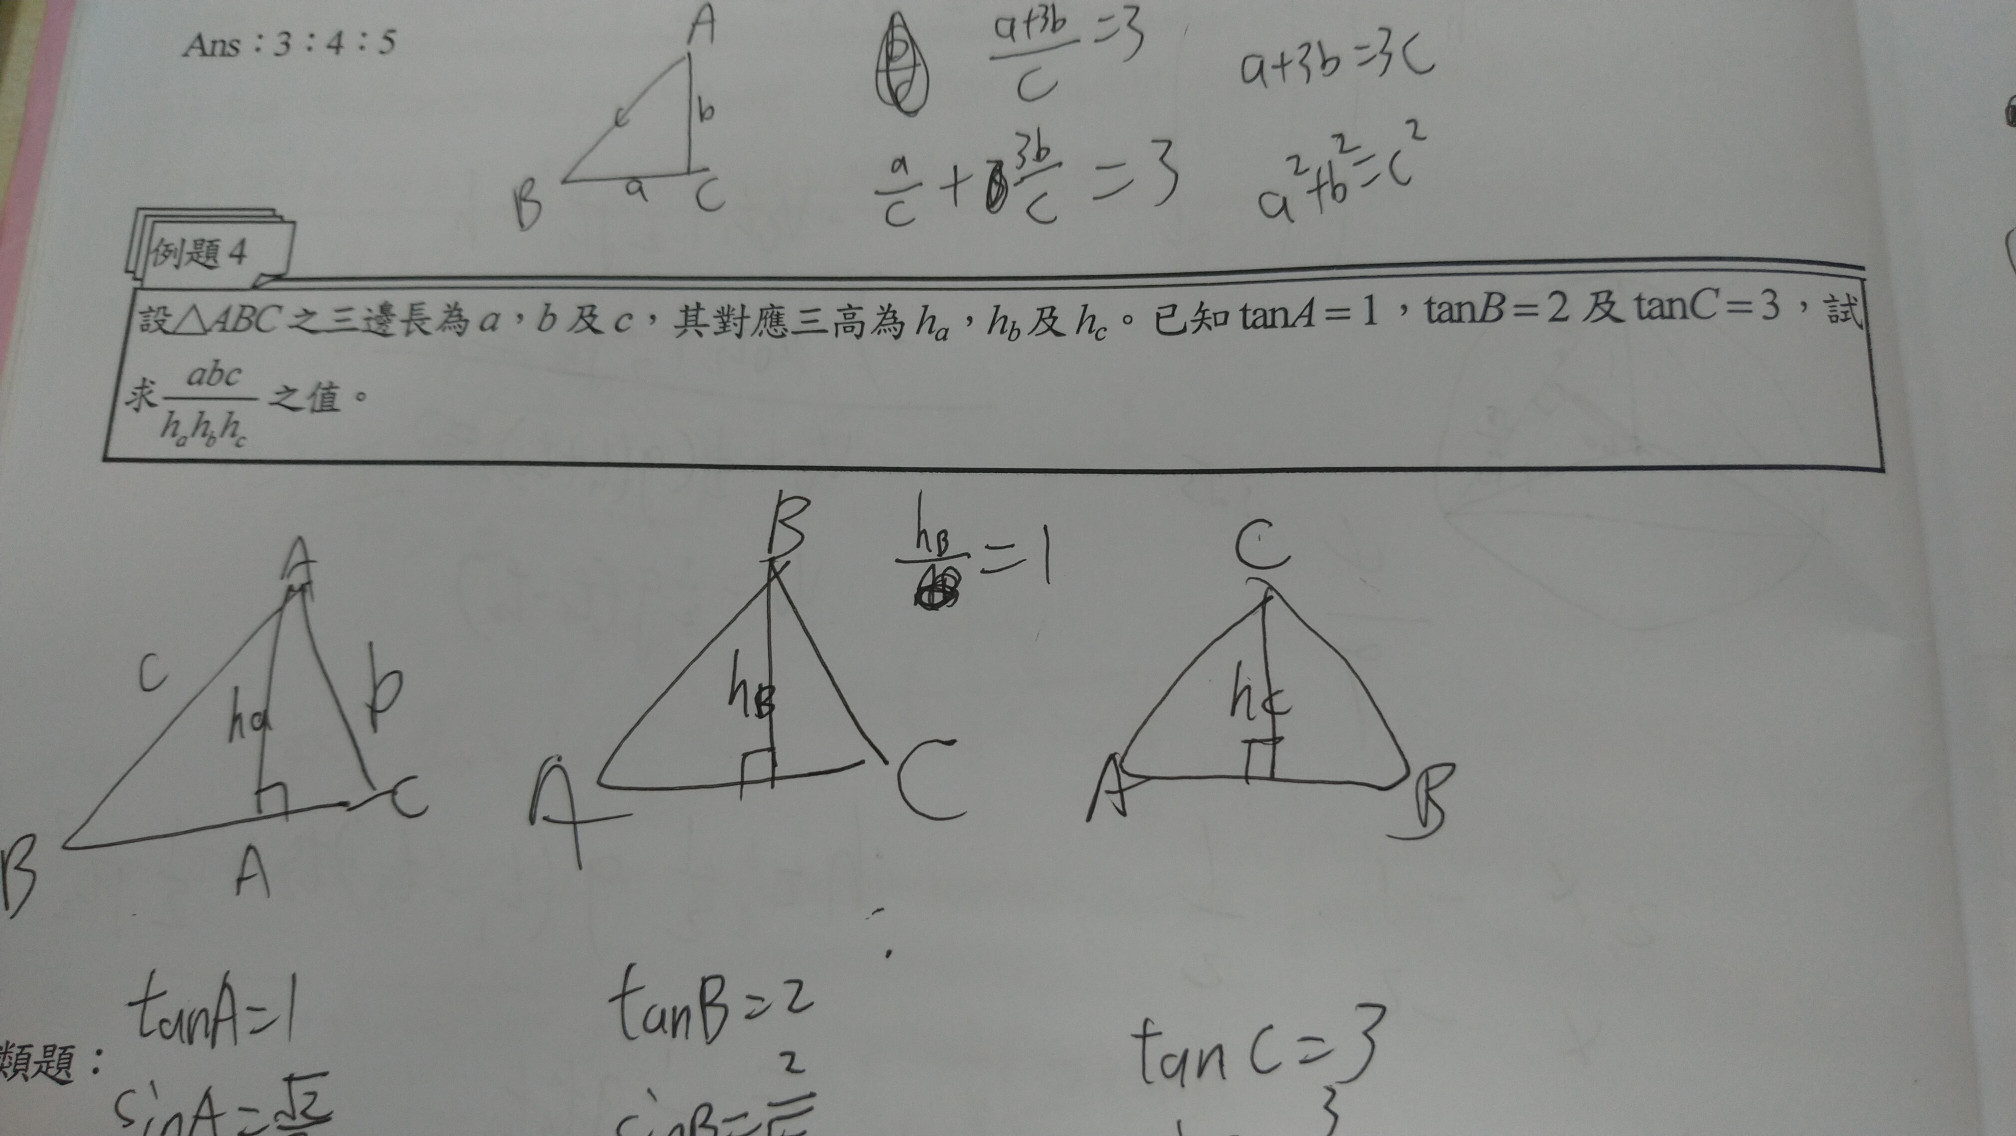 Ans：3：4：5
A
b
c
B
a
C
a+3b/c=3
a+3b=3c
a/c+3b/c=3
a²+b²=c²
例題 4
設△ABC 之三邊長為 a，b 及 c，其對應三高為 hₐ，h_b 及 h_c。已知 tanA=1，tanB=2 及 tanC=3，試
求 abc/hₐh_bh_c 之值。
A
c
ha
b
B
A
C
B
hB
A
C
hB/=1
C
hc
A
B
tanA=1
tanB=2
tanC=3
類題：
sinA=√2
sinB=2
3